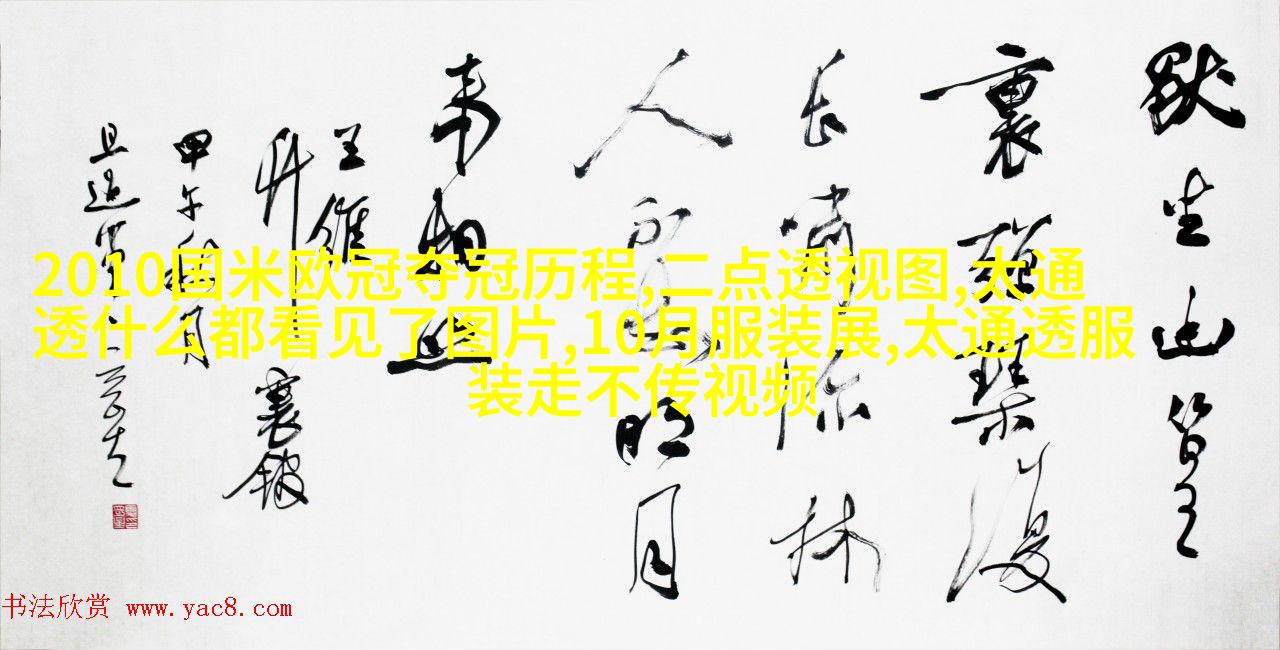 獨坐幽篁
裏弹琴復
长啸深林
人不知明月
来相照
王維
甲午秋月
2010国米欧冠夺冠历程,二点透视图,太通
透什么都看见了图片,10月服装展,太通透服
装走不传视频
书法欣赏 www.yac8.com